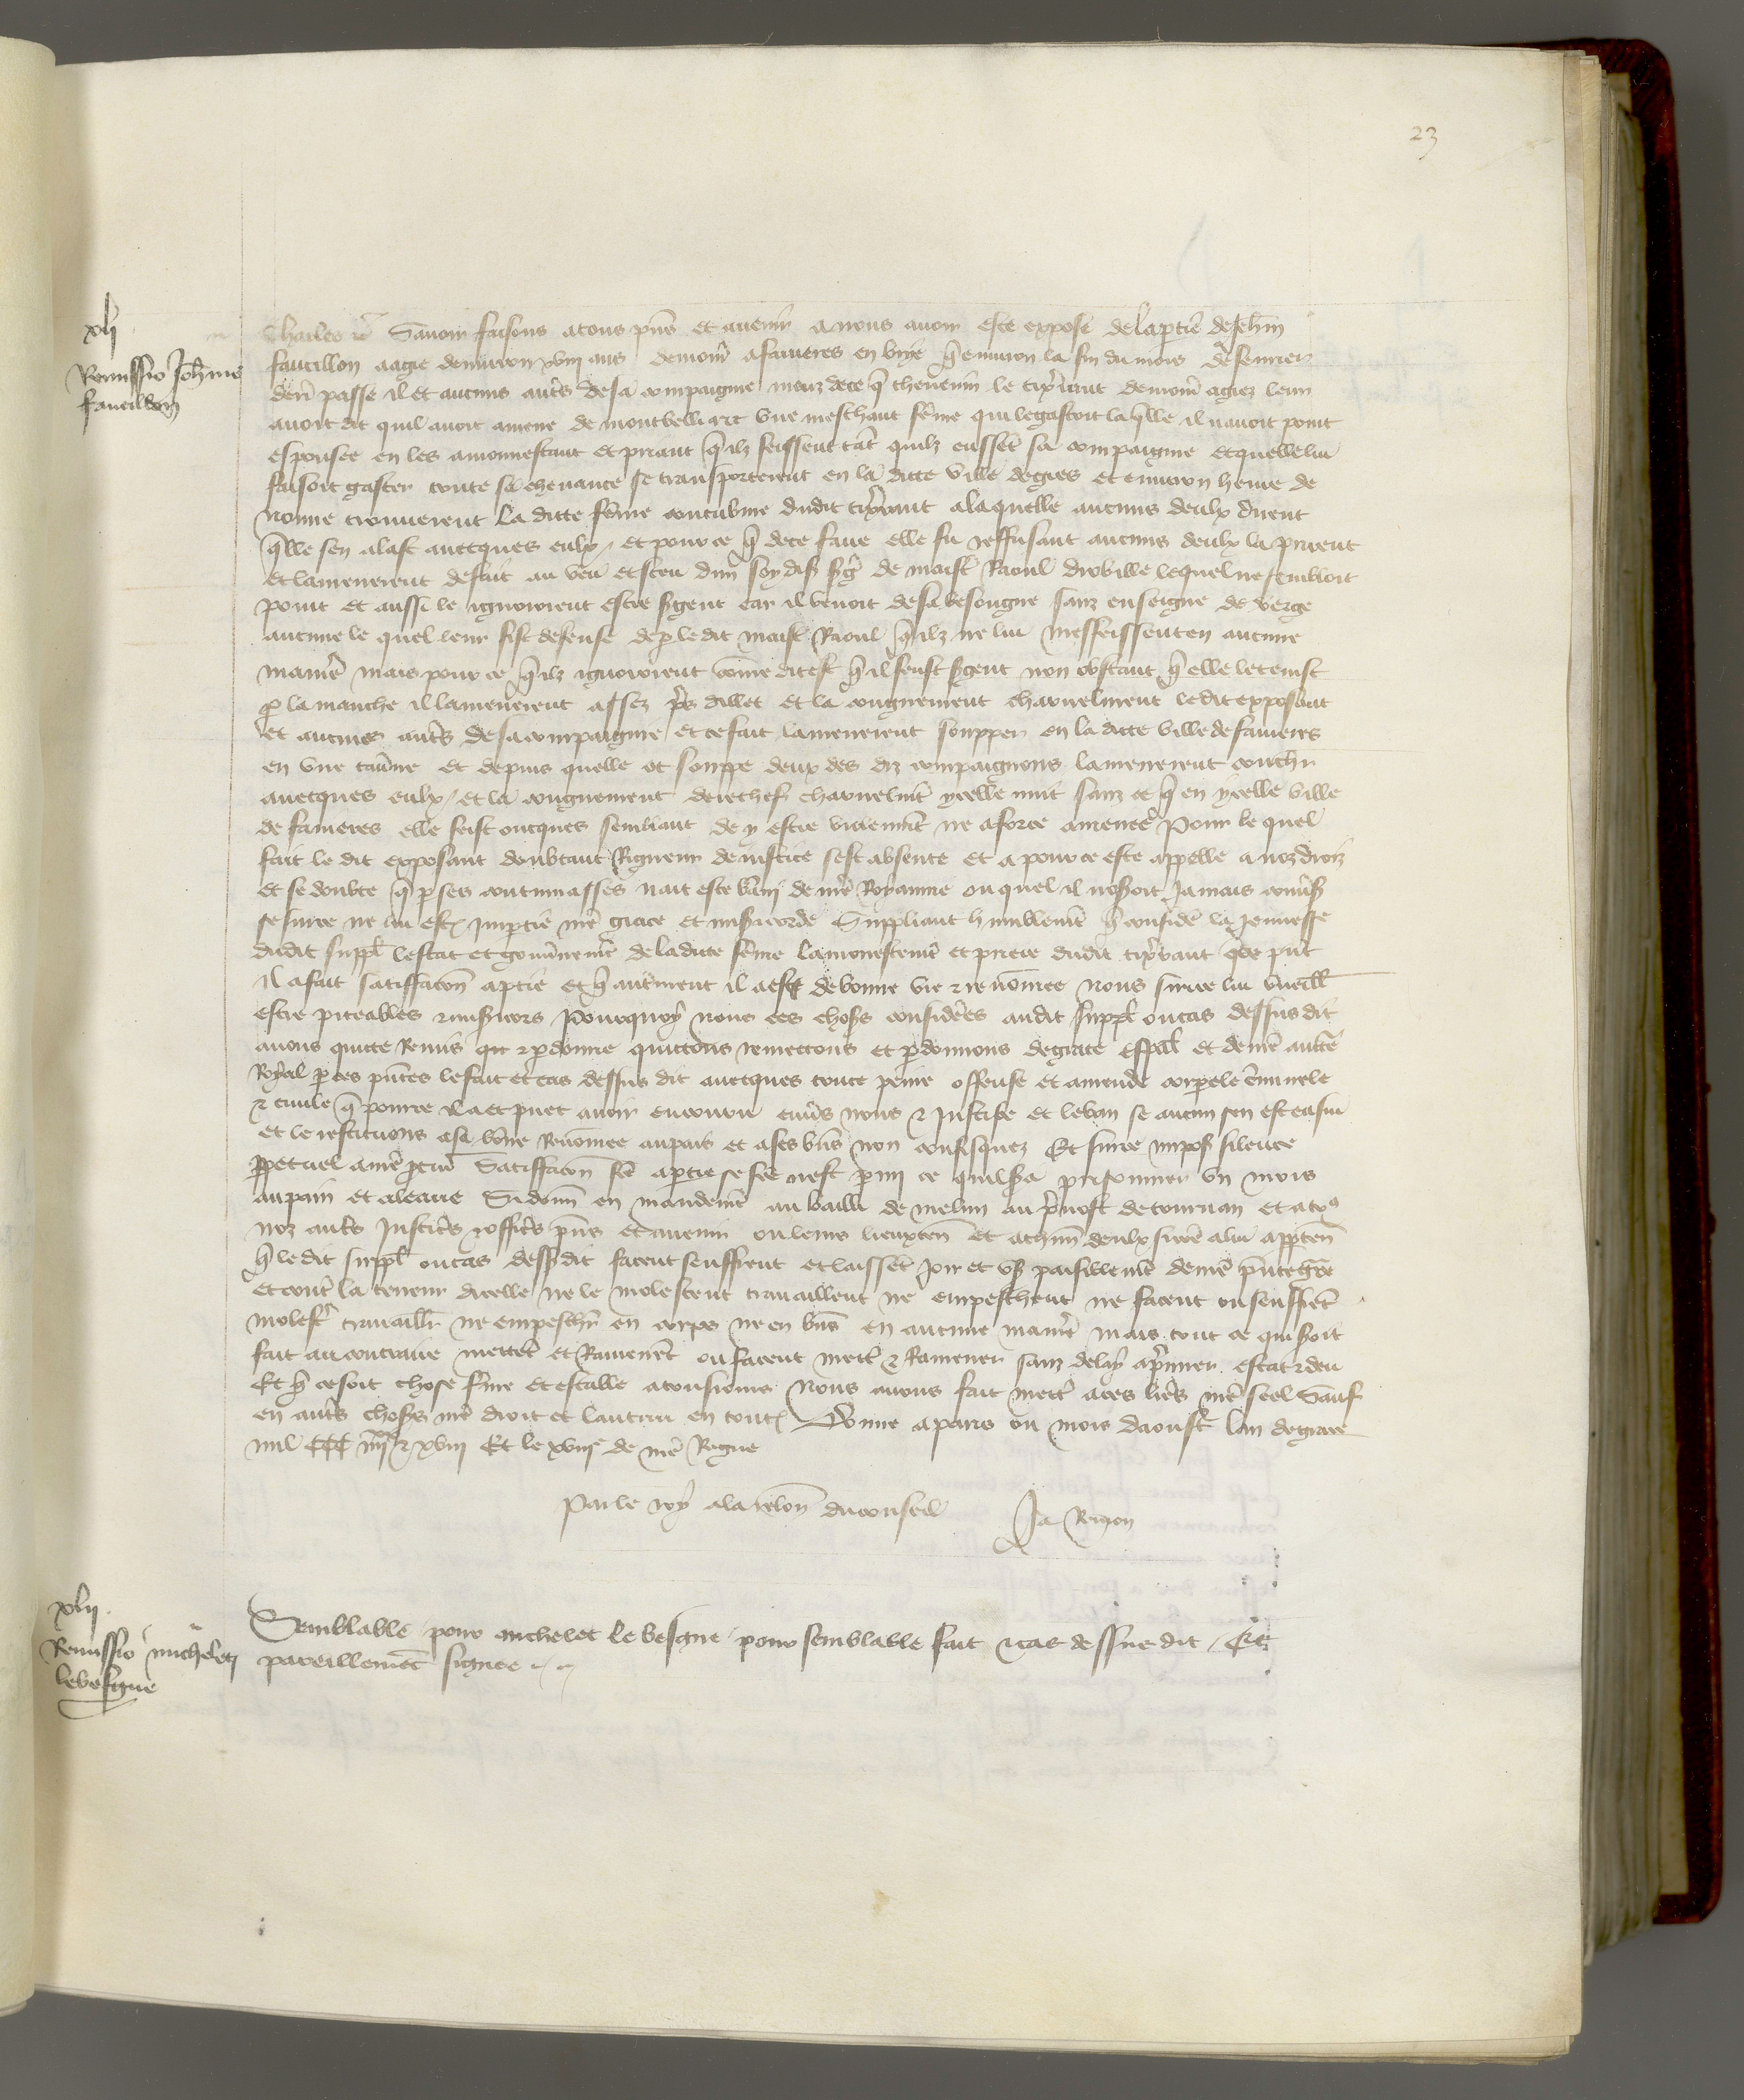 23
xlj
Remissio Joh̄nis
faucillon
Charles etc̄ Sauoir faisons a tous p̄ns et auenir a nous auoir este expose de la partie de Jeh̄n
faucillon aagie denuiron xviij ans demour̄ a fauieres en brye q̄ enuiron la fin du mois de feurier
der̄r passe il et aucuns aut̄s de sa compaignie meuz de ce q̄ theuenin le tix̄rant demour̄ a giez leur
auoit dit quil auoit amene de montbelliart vne meschant fēme qui le gastoit laq̄lle il nauoit point
espousee en les amonnestant et priant q̄ ilz feissent tāt quilz eussēt sa compaignie et quelle lui
faisoit gaster toute sa cheuance se transporterent en la ditte ville de gies et enuiron heure de
nonne trouuerent la ditte fēme concubine dudit tix̄rant a laquelle aucuns deulx dirent
q̄lle sen alast auecques eulx / et pour ce q̄ de ce faire elle fu reffusant aucuns deulx la prirent
et lamenerent de fait au veu et sceu dun soy dis̄ sḡ de maist̄ Raoul drobille lequel ne sembloit
point et aussi le ignoroient estre sgent car il venoit de sa besongne sanz enseigne de verge
aucune le quel leur fist defense de p le dit maist̄ Raoul q̄ ilz ne lui meffeissent en aucune
manie᷒ mais pour ce q̄ ilz ignoroient cōme dit est q̄ il feust sgent non obstant q̄ elle le tenist
p la manche il lamenerent assez p̄s dillec et la congnurent charnelment ledit exposant
et aucuns aut̄s de sa compaignie et ce fait lamenerent soupper en la ditte ville de fauieres
en vne tau̅ne et depuis quelle ot souppe deux des diz compaignons lamenerent couch̄r
auecques eulx / et la congnurent derechef charnelm̄t ycelle nuit sanz ce q̄ en ycelle ville
de fauieres elle feist oncques semblant de y estre violem̄t ne a force amenee Pour le quel
fait le dit exposant doubtant Rigueur de iustice sest absente et a pour ce este appelle a noz droiz
et se doubte q̄ p ses contumasses nait este bāni de n̄re Royaume ou quel il noseroit Jamais conu̅s
se surce ne lui est Imp̄tie n̄re grace et mis̄icorde Suppliant humblemēt q̄ consider̄ la Jeunesse
dudit suppl̄ lestat et gouu̅nemēt de la ditte fēme lamonestemēt et priere dudit tix̄rant q̄ de p̄nt
il a fait satisfacōn a p̄tie et q̄ aut̄ment il a este de bonne vie et renōmee nous surce lui vueill̄
estre piteables et mis̄icors Pourquoy nous ces choses consider̄es audit suppl̄ ou cas dessus dit
auons quitte Remis et pdonne quittons remettons et pdonnons de grace esp̄al et de n̄re auct̄e
Royal p ces p̄ntes le fait et cas dessus dit auecques toute peine offense et amende corporele c̄minele
et ciuile q̄ pour ce il a et puet auoir encouru enu̅s nous et Justice et le ban se aucun sen est ensuiui
et le restituons a sa bōne Renōmee au pais et a ses b̄ns non confisquez Et surce impos̄ silence
ppetuel a n̄re pcureur Satisfacōn fc̄e a partie se fc̄e nest p my ce quil sera prisonnier vn mois
au pain et a leaue Si donn̄ en mandemēt au bailli de melun au p̄uost de tournan et a to⁹
noz aut̄s Justic̄s et offic̄s p̄ns et auenir ou leurs lieuxten̄ et a ch̄un deulx si cōe a lui apparten̄
q̄ le dit suppl̄ ou cas dess⁹ dit facent seuffrent et laissēt Joir et vs̄ paisiblemēt de n̄re p̄nte gr̄ce
et cont̄e la teneur dicelle ne le molestent trauaillent ne empeschent ne facent ou seuffrēt
molest̄ trauaill̄r ne empesch̄r en corps ne en b̄ns en aucune manie᷒ mais tout ce qui seroit
fait au contraire mettēt et Ramenēt ou facent mett̄ et Ramener sanz delay a p̄mier estat et deu
Et q̄ ce soit chose ferme et estable a tousiours Nous auons fait mett̄ a ces l̄res n̄re seel Sauf
en aut̄s choses n̄re droit et lautrui en tout̄ Donne a paris ou mois daoust lan de grace
mil CCC iiij^xx et xviij Et le xviij^e de n̄re Regne
Par le roy a la relōn du conseil Ja Remon
xlij
Remissio micheleti
levesgue
Semblable pour michelet le besgue pour semblable fait et cas dessus dit / Et
pareillemēt signee